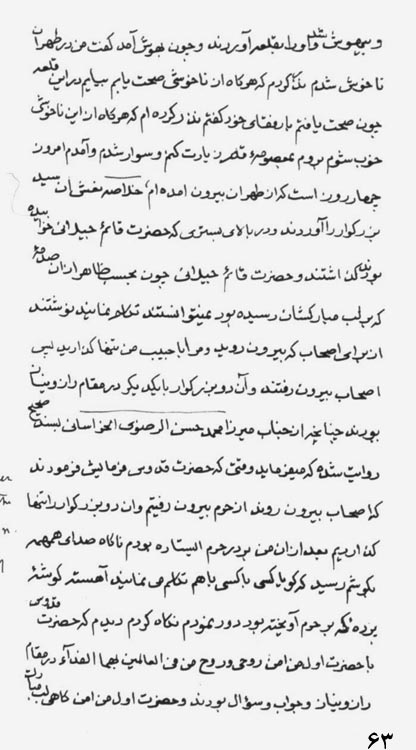 و بیهوش شد و او را بقلعه آوردند و چون بهوش آمد گفت من در طهران
ناخوش شدم نذر کردم که هرگاه از ناخوشی صحت یابم بیایم در این قلعه
چون صحت یافتم با رفقای خود گفتم نذر کرده ام که هرگاه از این ناخوشی
خوب شوم بروم بمعصومهٔ قم زیارت کنم و سوار شدم و آمدم امروز
چهار روز است که از طهران بیرون آمده ام، خلاصه نعش آن سید
بزرگوار را آوردند و در بالای بستری که حضرت قائم جیلانی خوابیده
بودند گذاشتند و حضرت قائم جیلانی چون بحسب ظاهر از آن صدمهٔ
که بر لب مبارکشان رسیده بود نمیتوانستند تکلم نمایند نوشتند
از برای اصحاب که بیرون روید و مرا با حبیب من تنها گذارید پس
اصحاب بیرون رفتند و آن دو بزرگوار با یکدیگر در مقام راز و نیاز
بودند چنانچه از جناب میرزا محمد حسن الرضوی الخراسانی بسند صحیح
روایت شده که میفرماید وقتی که حضرت قدوس فرمایش فرمودند
که اصحاب بیرون روند از حرم بیرون رفتیم و آن دو بزرگوار را تنها
گذاردیم بعد از آن من بر در حرم ایستاده بودم ناگاه صدای همهمه
بگوشم رسید که گویا کسی با کسی با هم تکلم می نمایند آهسته گوشهٔ
پرده که بر حرم آویخته بود دور نمودم نگاه کردم دیدم که حضرت قدوس
با حضرت اول من امن روحی و روح من فی العالمین لهما الفداء در مقام
راز و نیاز و جواب و سؤال بودند و حضرت اول من امن گاهی لب مبارک
۶۳